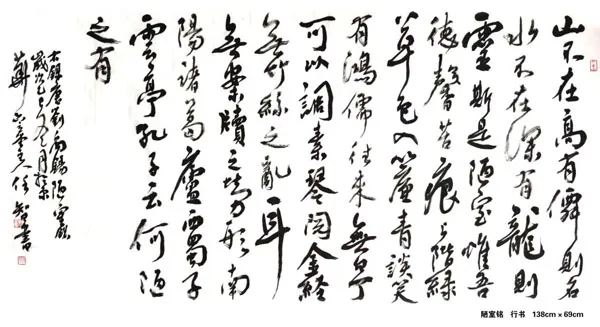 山不在高有僊則名
水不在深有龍則
靈斯是陋室惟吾
德馨苔痕上階緑
草色入簾青談笑
有鴻儒往來無白丁
可以調素琴閱金經
無竹絲之亂耳
無案牘之勞形南
陽諸葛廬西蜀子
雲亭孔子云何陋
之有
右録唐劉禹錫陋室銘
歲次
主人任智書
陋室铭 行书 138cm×69cm